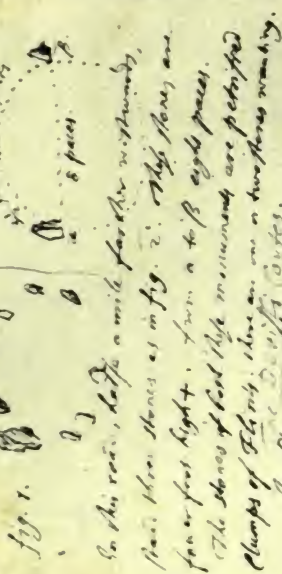 fig. 1.
8 paces.
a
In this roade, halfe a mile farther westwards,
stand three stones as in fig. 2: These stones are
fower foot high +. from a to β eight paces.
The stones of both these monuments are petrified
clumps of Flints: there are one or two stones wanting.
The Devill's Coytes.